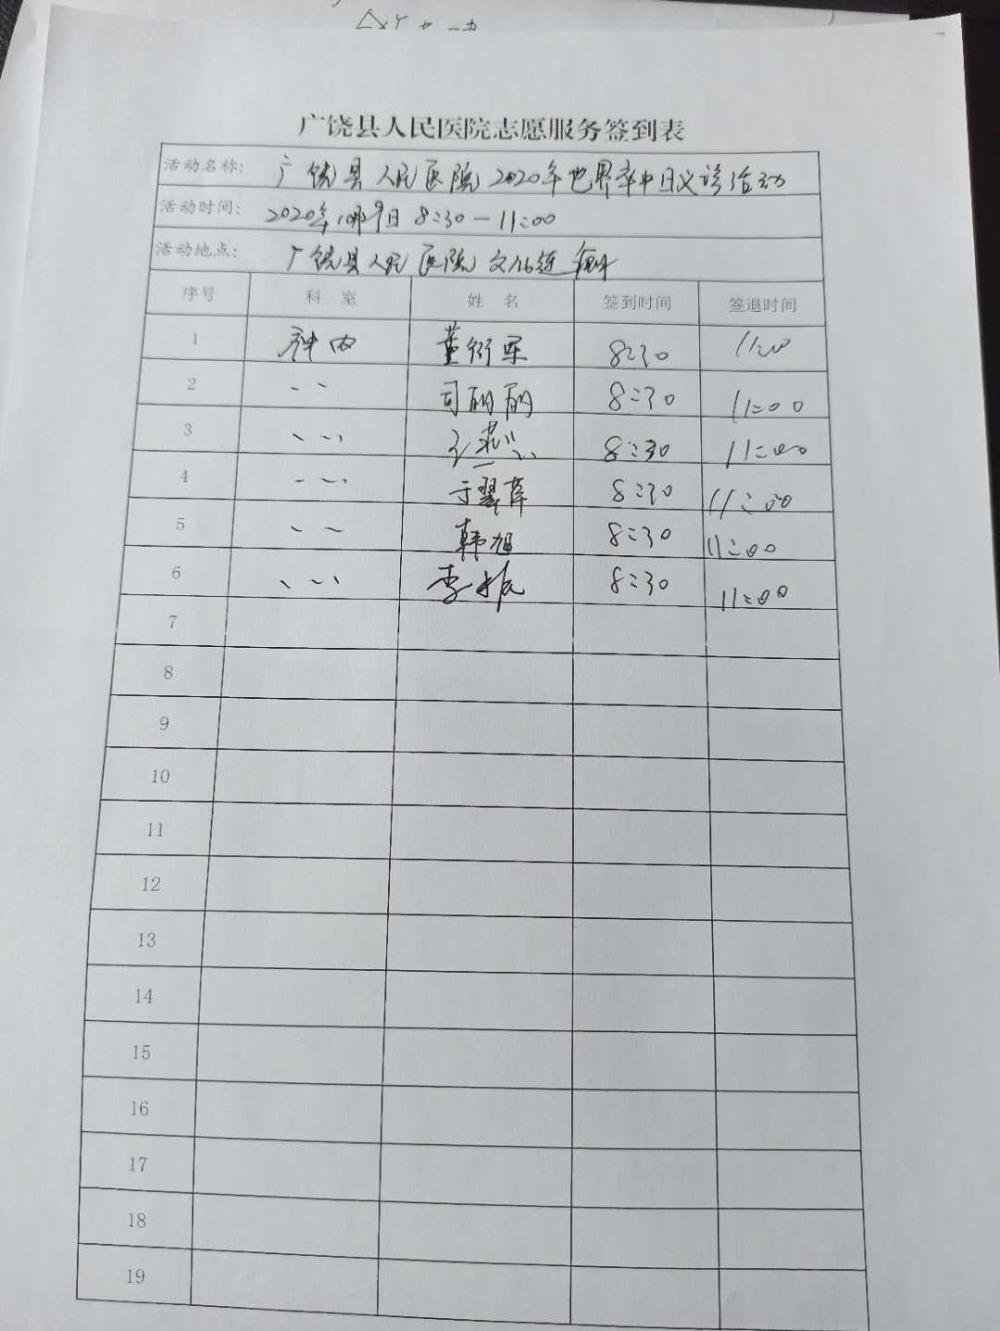 广饶县人民医院志愿服务签到表
活动名称: 广饶县人民医院2020年世界卒中日义诊活动
活动时间: 2020年10月29日 8:30-11:00
活动地点: 广饶县人民医院文化连廊
序号 科室 姓名 签到时间 签退时间
1 神内 董衍军 8:30 11:00
2 〃 司丽丽 8:30 11:00
3 〃 燕 8:30 11:00
4 〃 于翠萍 8:30 11:00
5 〃 韩旭 8:30 11:00
6 〃 李振 8:30 11:00
7
8
9
10
11
12
13
14
15
16
17
18
19